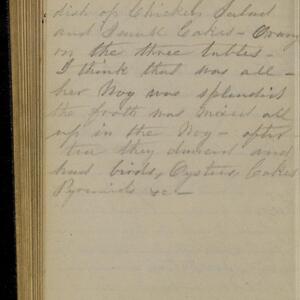 dish of Chicken Salad
and Small Cakes - Orang
on the three tables -
I think that was all -
her Nog was splendid
the froth was mixed all
up in the Nog - after
tea they danced and
had birds, Oysters, Cakes
Pyramids &c -